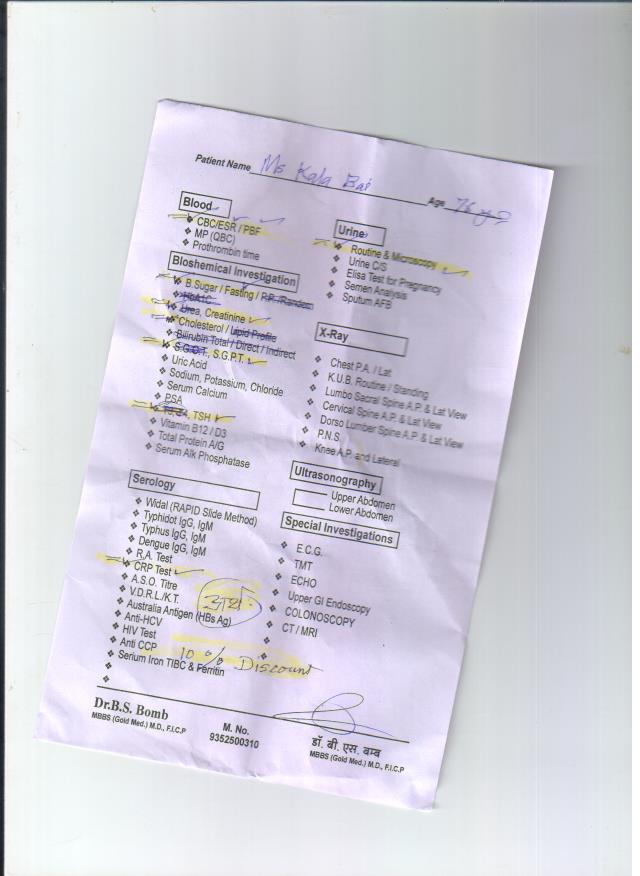 Patient Name Ms Kala Bai
Age 76 yr
Blood
❖ CBC/ESR / PBF
❖ MP (QBC)
❖ Prothrombin time
Bioshemical Investigation
❖ B.Sugar / Fasting / P.P. /Random
❖ HbA1C
❖ Urea, Creatinine
❖ Cholesterol / Lipid Profile
❖ Bilirubin Total / Direct / Indirect
❖ S.G.O.T, S.G.P.T.
❖ Uric Acid
❖ Sodium, Potassium, Chloride
❖ Serum Calcium
❖ PSA
❖ T3, T4, TSH
❖ Vitamin B12 / D3
❖ Total Protein A/G
❖ Serum Alk Phosphatase
Serology
❖ Widal (RAPID Slide Method)
❖ Typhidot IgG, IgM
❖ Typhus IgG, IgM
❖ Dengue IgG, IgM
❖ R.A. Test
❖ CRP Test
❖ A.S.O. Titre
❖ V.D.R.L./K.T.
❖ Australia Antigen (HBs Ag)
❖ Anti-HCV
❖ HIV Test
❖ Anti CCP
❖ Serium Iron TIBC & Ferritin
Urine
❖ Routine & Microscopy
❖ Urine C/S
❖ Elisa Test for Pregnancy
❖ Semen Analysis
❖ Sputum AFB
X-Ray
❖ Chest P.A. / Lat
❖ K.U.B. Routine / Standing
❖ Lumbo Sacral Spine A.P. & Lat View
❖ Cervical Spine A.P. & Lat View
❖ Dorso Lumber Spine A.P. & Lat View
❖ P.N.S.
❖ Knee A.P. and Lateral
Ultrasonography
Upper Abdomen
Lower Abdomen
Special Investigations
❖ E.C.G.
❖ TMT
❖ ECHO
❖ Upper GI Endoscopy
❖ COLONOSCOPY
❖ CT / MRI
10 % Discount
Dr.B.S. Bomb
MBBS (Gold Med.) M.D., F.I.C.P
M. No.
9352500310
डॉ. बी. एस. बम्ब
MBBS (Gold Med.) M.D., F.I.C.P